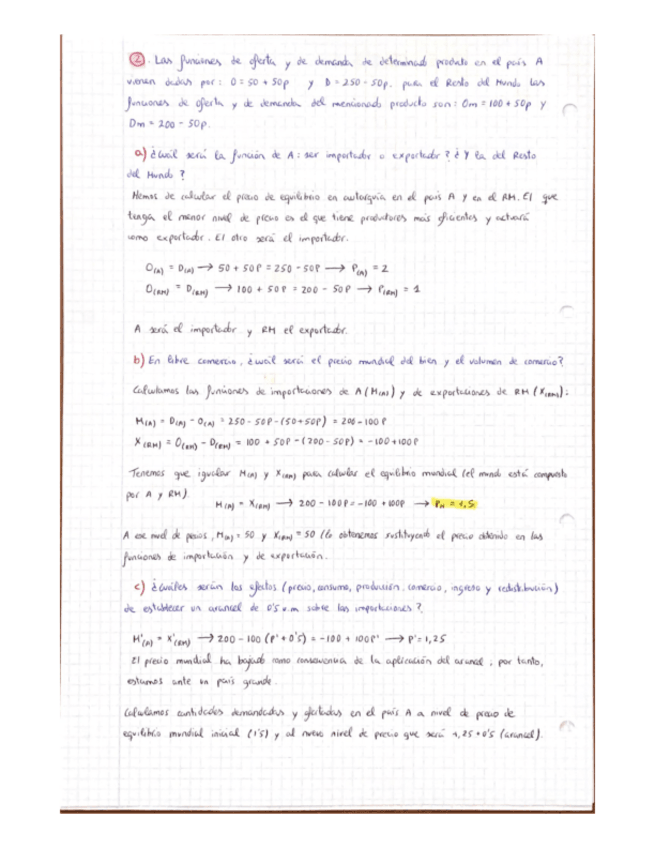 ②. Las funciones de oferta y de demanda de determinado producto en el país A
vienen dadas por: O = 50 + 50p y D = 250 - 50p. para el Resto del Mundo las
funciones de oferta y de demanda del mencionado producto son: Om = 100 + 50p y
Dm = 200 - 50p.
a) ¿Cuál será la función de A: ser importador o exportador? ¿Y la del Resto
del Mundo?
Hemos de calcular el precio de equilibrio en autarquía en el país A y en el RM. El que
tenga el menor nivel de precio es el que tiene productores más eficientes y actuará
como exportador. El otro será el importador.
O(A) = D(A) → 50 + 50P = 250 - 50P → P(A) = 2
O(RM) = D(RM) → 100 + 50P = 200 - 50P → P(RM) = 1
A será el importador y RM el exportador.
b) En libre comercio, ¿cuál será el precio mundial del bien y el volumen de comercio?
Calculamos las funciones de importaciones de A (M(A)) y de exportaciones de RM (X(RM)):
M(A) = D(A) - O(A) = 250 - 50P - (50+50P) = 200 - 100P
X(RM) = O(RM) - D(RM) = 100 + 50P - (200 - 50P) = -100 + 100P
Tenemos que igualar M(A) y X(RM) para calcular el equilibrio mundial (el mundo está compuesto
por A y RM).
M(A) = X(RM) → 200 - 100P = -100 + 100P → PM = 1,5
A ese nivel de precios, M(A) = 50 y X(RM) = 50 (lo obtenemos sustituyendo el precio obtenido en las
funciones de importación y de exportación.
c) ¿Cuáles serán los efectos (precio, consumo, producción, comercio, ingreso y redistribución)
de establecer un arancel de 0'5 u.m sobre las importaciones?
M'(A) = X'(RM) → 200 - 100 (P' + 0'5) = -100 + 100P' → P' = 1,25
El precio mundial ha bajado como consecuencia de la aplicación del arancel; por tanto,
estamos ante un país grande.
Calculamos cantidades demandadas y ofertadas en el país A a nivel de precio de
equilibrio mundial inicial (1'5) y al nuevo nivel de precio que será 1,25 + 0'5 (arancel).